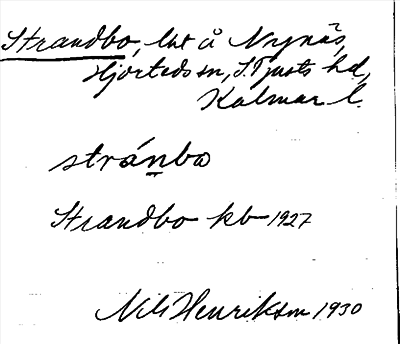 Strandbo, lht å Nynäs,
Hjorteds sn, S. Tjusts hd,
Kalmar l.
stránba
Strandbo kb 1927
Nils Henriksson 1930